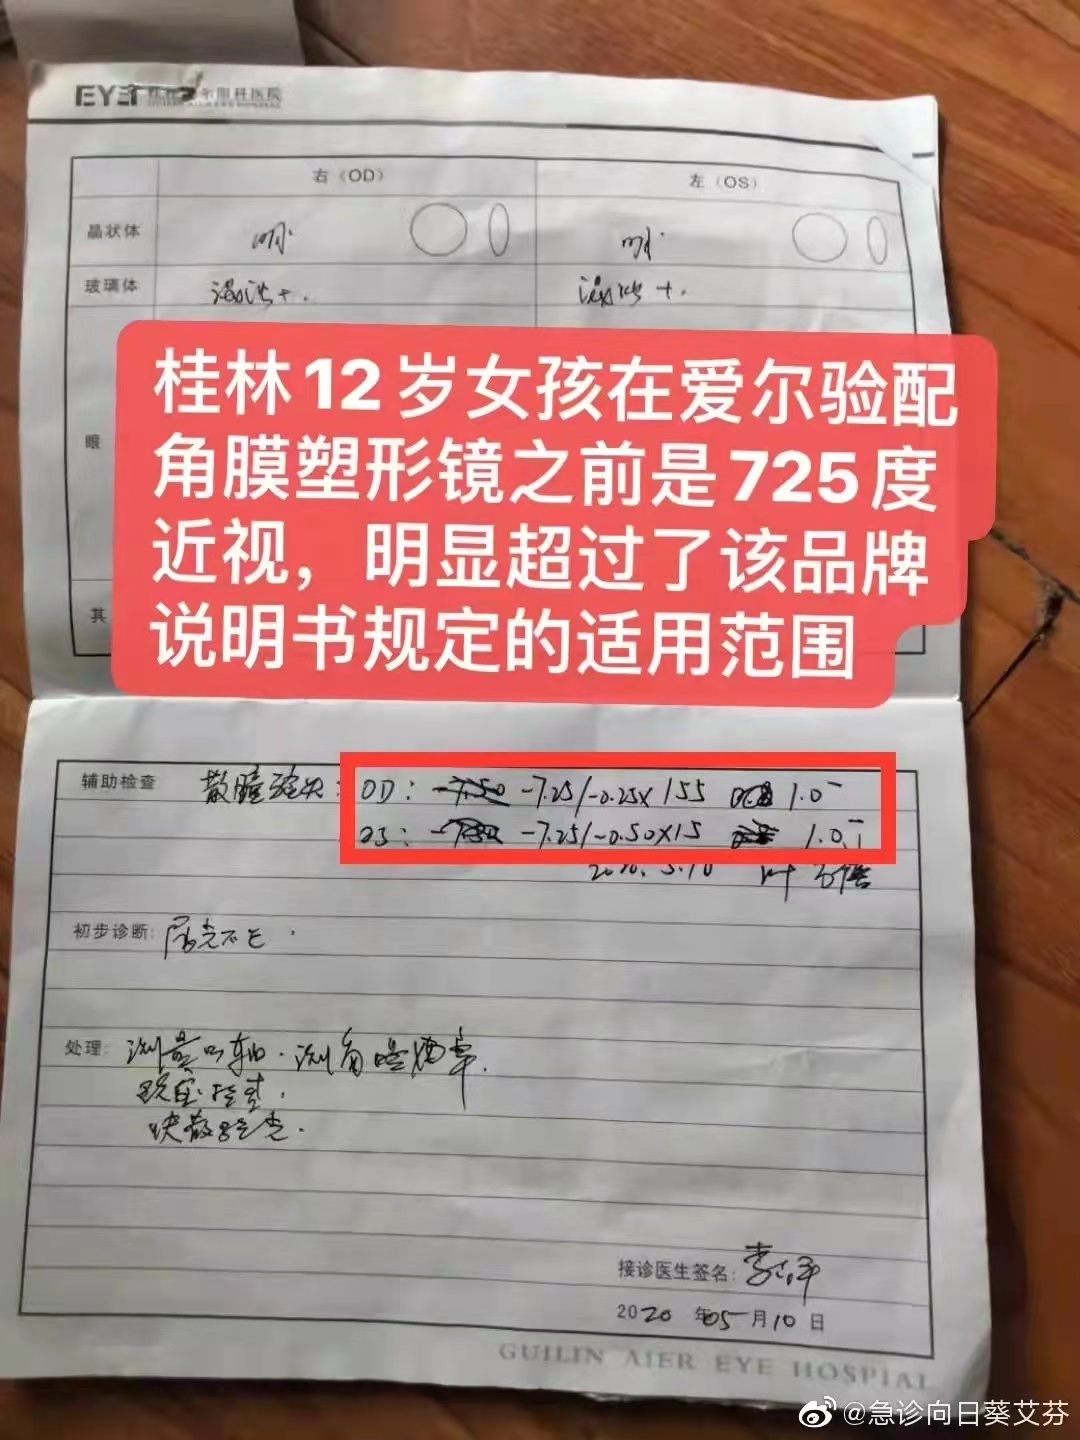 EYE 尔眼科医院
右（OD） 左（OS）
晶状体
玻璃体 混浊+. 混浊+.
桂林12岁女孩在爱尔验配
角膜塑形镜之前是725度
近视，明显超过了该品牌
说明书规定的适用范围
眼
其
辅助检查 散瞳验光: OD: -7.50 -7.25/-0.25×155 1.0⁻
OS: -7.50 -7.25/-0.50×15 1.0⁻
2020.5.10
初步诊断: 屈光不正.
处理: 测量眼轴.测角膜曲率.
眼底检查.
快散验光.
接诊医生签名:
2020 年05月10日
GUILIN AIER EYE HOSPIAL
@急诊向日葵艾芬